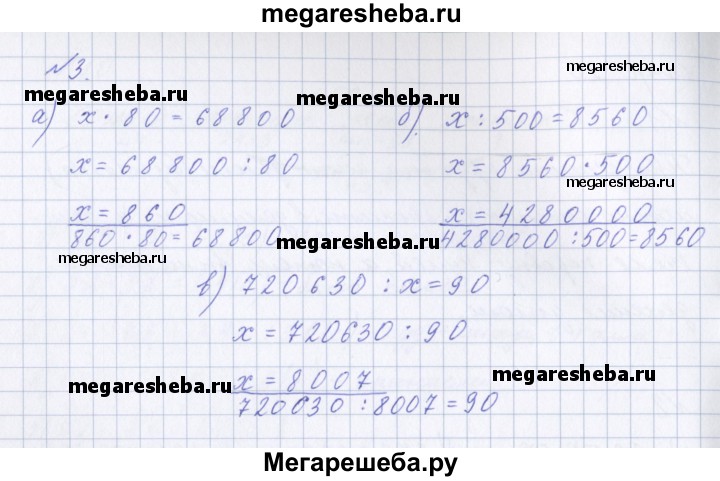 megaresheba.ru
№3.
megaresheba.ru
megaresheba.ru
megaresheba.ru
а) x · 80 = 68800
x = 68800 : 80
x = 860
860 · 80 = 68800
б). x : 500 = 8560
x = 8560 · 500
megaresheba.ru
x = 4280000
4280000 : 500 = 8560
megaresheba.ru
megaresheba.ru
в) 720630 : x = 90
x = 720630 : 90
x = 8007
720630 : 8007 = 90
megaresheba.ru
megaresheba.ru
Мегарешеба.ру